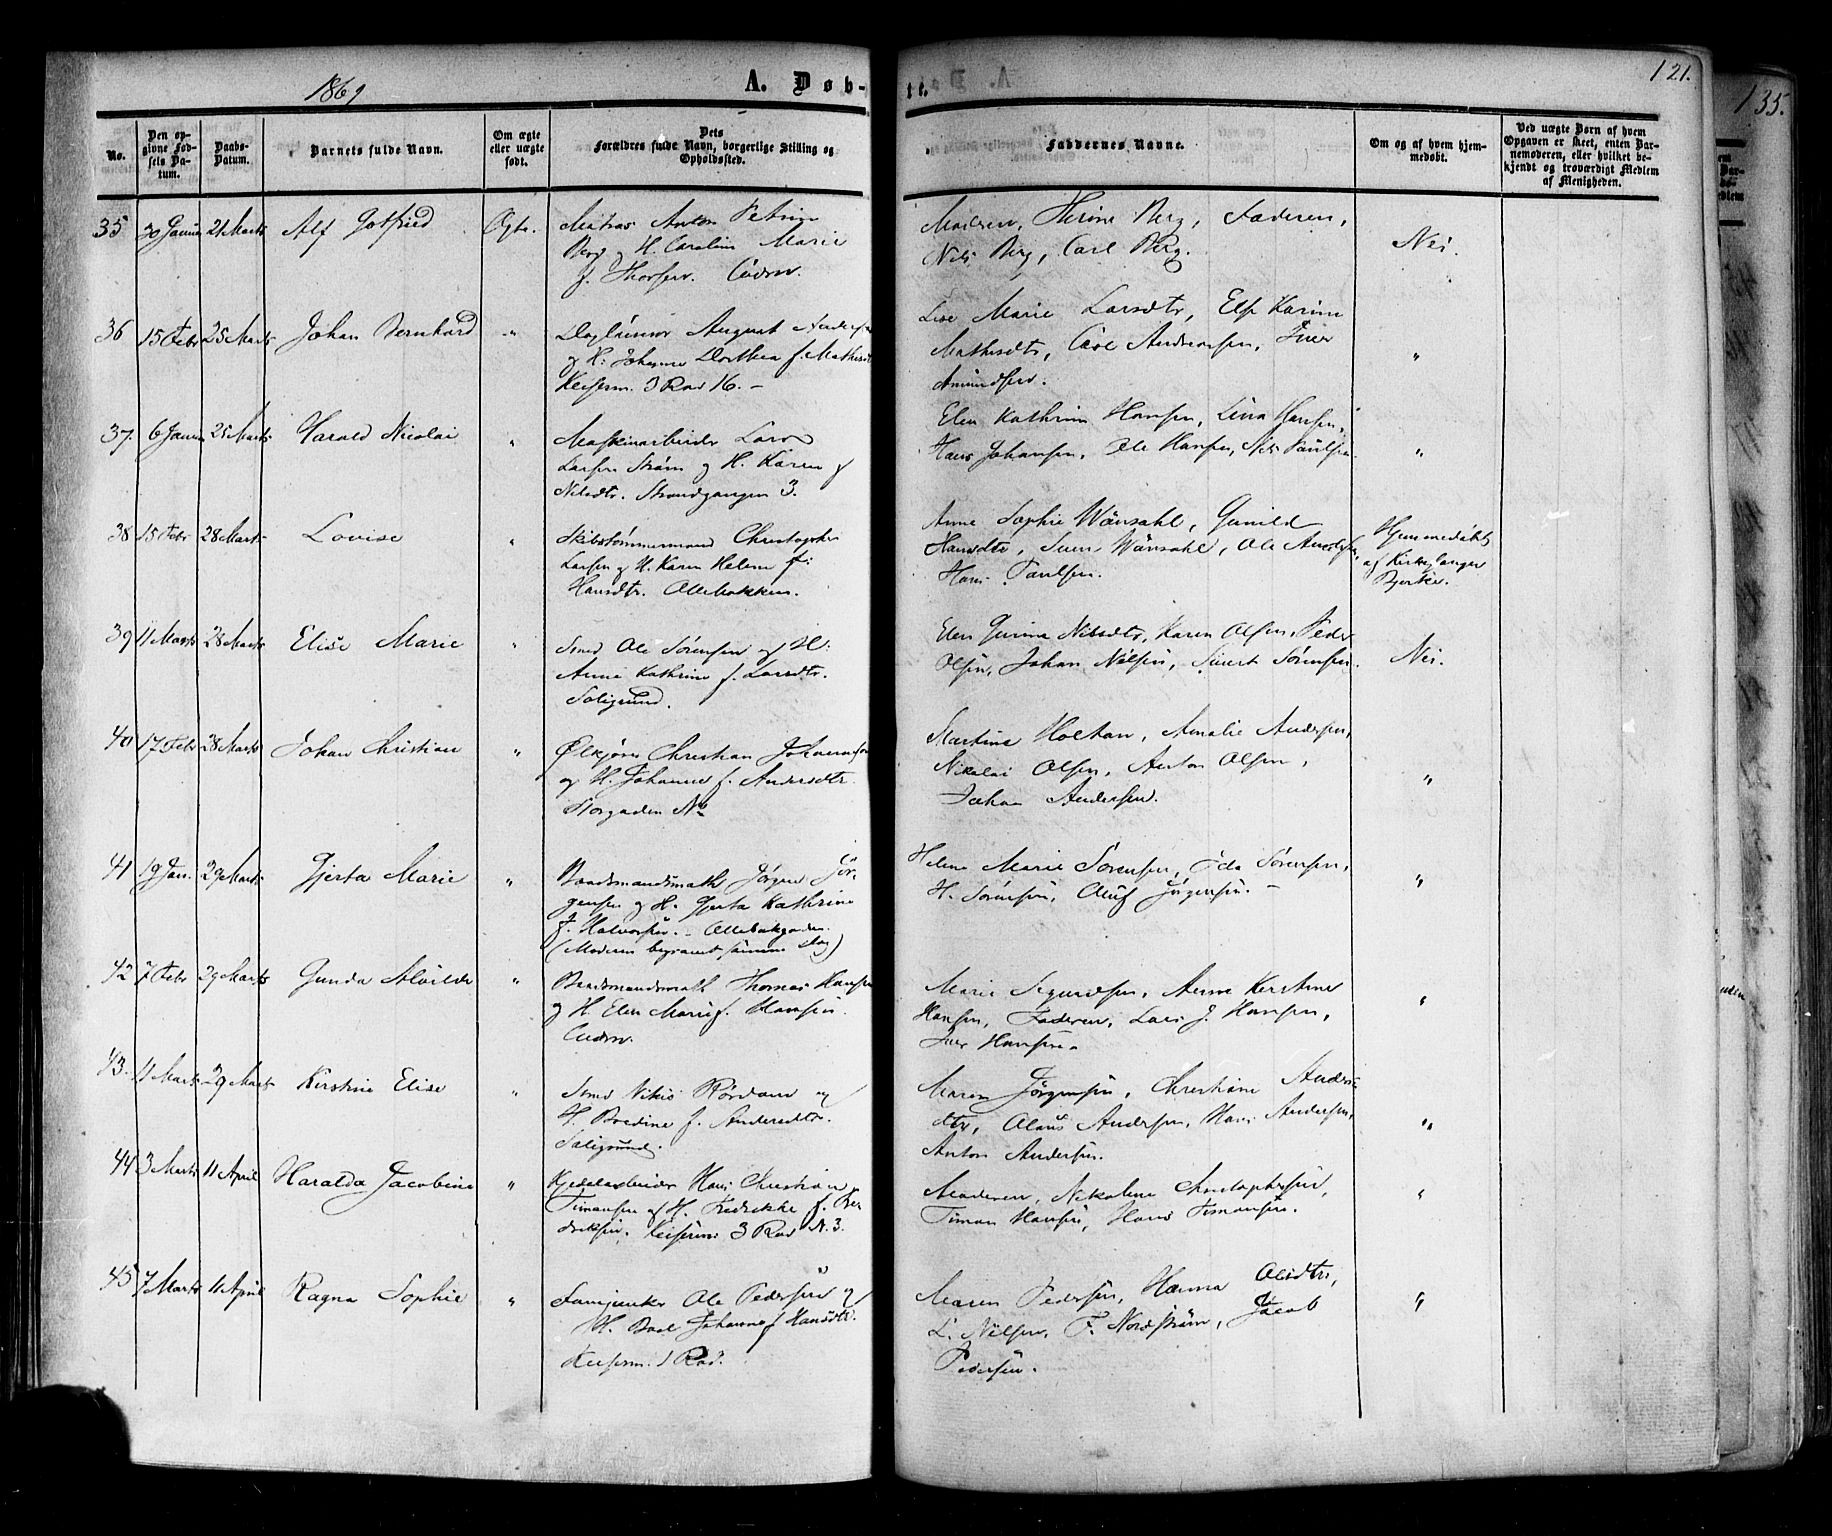 1869
A. Døb-
te.
121.
135.
No.
Den op-
givne Fød-
sels Da-
tum.
Daabs-
Datum.
Barnets fulde Navn.
Om ægte
eller uægte
født.
Dets
Forældres fulde Navn, borgerlige Stilling og
Opholdssted.
Faddernes Navne.
Om og af hvem hjem-
medøbt.
Ved uægte Børn af hvem
Opgaven er skeet, enten Bar-
nemoderen, eller hvilket be-
kjendt og troværdigt Medlem
af Menigheden.
35 30 Januar 21 Marts Alf Gotfried Ægte.
Matros Anton
Berg og H. Caroline Marie
f. Thorsen.
Moderen, Herine Berg, Faderen,
Nils Berg, Carl Berg.
Nei.
36 15 Febr 25 Marts Johan Bernhard "
Daglønner August Anders
og H. Johanne Dorthea f. Mathisdt
Keiserm. 3 Rad 16. -
Lise Marie Larsdtr, Else Karine
Mathisdtr, Carl Andreasen, Iver
Amundsen.
"
37. 6 Januar 25 Marts Harald Nicolai "
Maskinarbeider Lars
Larsen Strøm og H. Karen f
Nilsdtr. Strandgangen 3.
Elen Kathrine Hansen, Lina Hansen,
Hans Johansen, Ole Hansen, Nils Paulsen.
"
38 15 Febr 28 Marts Lovise "
Skibstømmermand Christopher
Larsen og H. Karen Helene f:
Hansdtr. Ollebakken.
Anne Sophie Wånsahl, Gunild
Hansdtr, Svens Wånsahl, Ole Andersen,
Hans Paulsen.
Hjemmedøbt
af Kirkesanger
Bjerke.
39 11 Marts 28 Marts Elise Marie "
Smed Ole Sørensen og H:
Anne Kathrine f. Larsdtr.
Saligrund.
Elen Gurina Nilsdtr, Karen Olsen, Peder
Olsen, Johan Nilsen, Sivert Sørensen.
Nei.
40 17 Febr 28 Marts Johan Christian "
Ølkjører Christian Johannesen
og H. Johanne f. Andersdtr.
Storgaden No
Martine Holtan, Amalie Andersen,
Nikolai Olsen, Anton Olsen,
Johan Andersen.
"
41 19 Jan. 29 Marts Gjerta Marie "
Baadsmandsmath Jørgen Jør-
gensen og H. Gjerta Kathrine
f. Halvorsen. - Ollebakgaden.
(Moderen begravet samme Dag)
Helene Marie Sørensen, Ida Sørensen,
H. Sørensen, Oluf Jørgensen. -
"
42 7 Febr 29 Marts Gunda Alvilde "
Baadsmandsmath Thomas Hansen
og H. Elen Marie f. Hansen.
Marie Sigurdsen, Anne Kerstine
Hansen, Faderen, Lars J. Hansen,
Iver Hansen.
"
43. 11 Marts 29 Marts Kirstine Elise "
Smed Nikis Rørdam og
H. Bredine f. Andersdtr.
Saligrund.
Maren Jørgensen, Christiane Anders
dtr, Olaus Andersen, Hans Andersen,
Anton Andersen.
"
44 3 Marts 11 April Haralda Jacobine "
Kjedelarbeider Hans Christian
Timansen og H. Fredrikke f. Fre
driksen. Keiserm: 3 Rad N. 3.
Moderen, Nikoline Christophersen,
Timan Hansen, Hans Timansen.
"
45 7 Marts 11 April Ragna Sophie "
Fanejunker Ole Pedersen og
H. Boel Johanne f Hansdtr.
Keiserm. 1 Rad.
Maren Pedersen, Hanna Olsdtr,
L. Nilsen, F. Nordstrøm, Jacob
Pedersen.
"